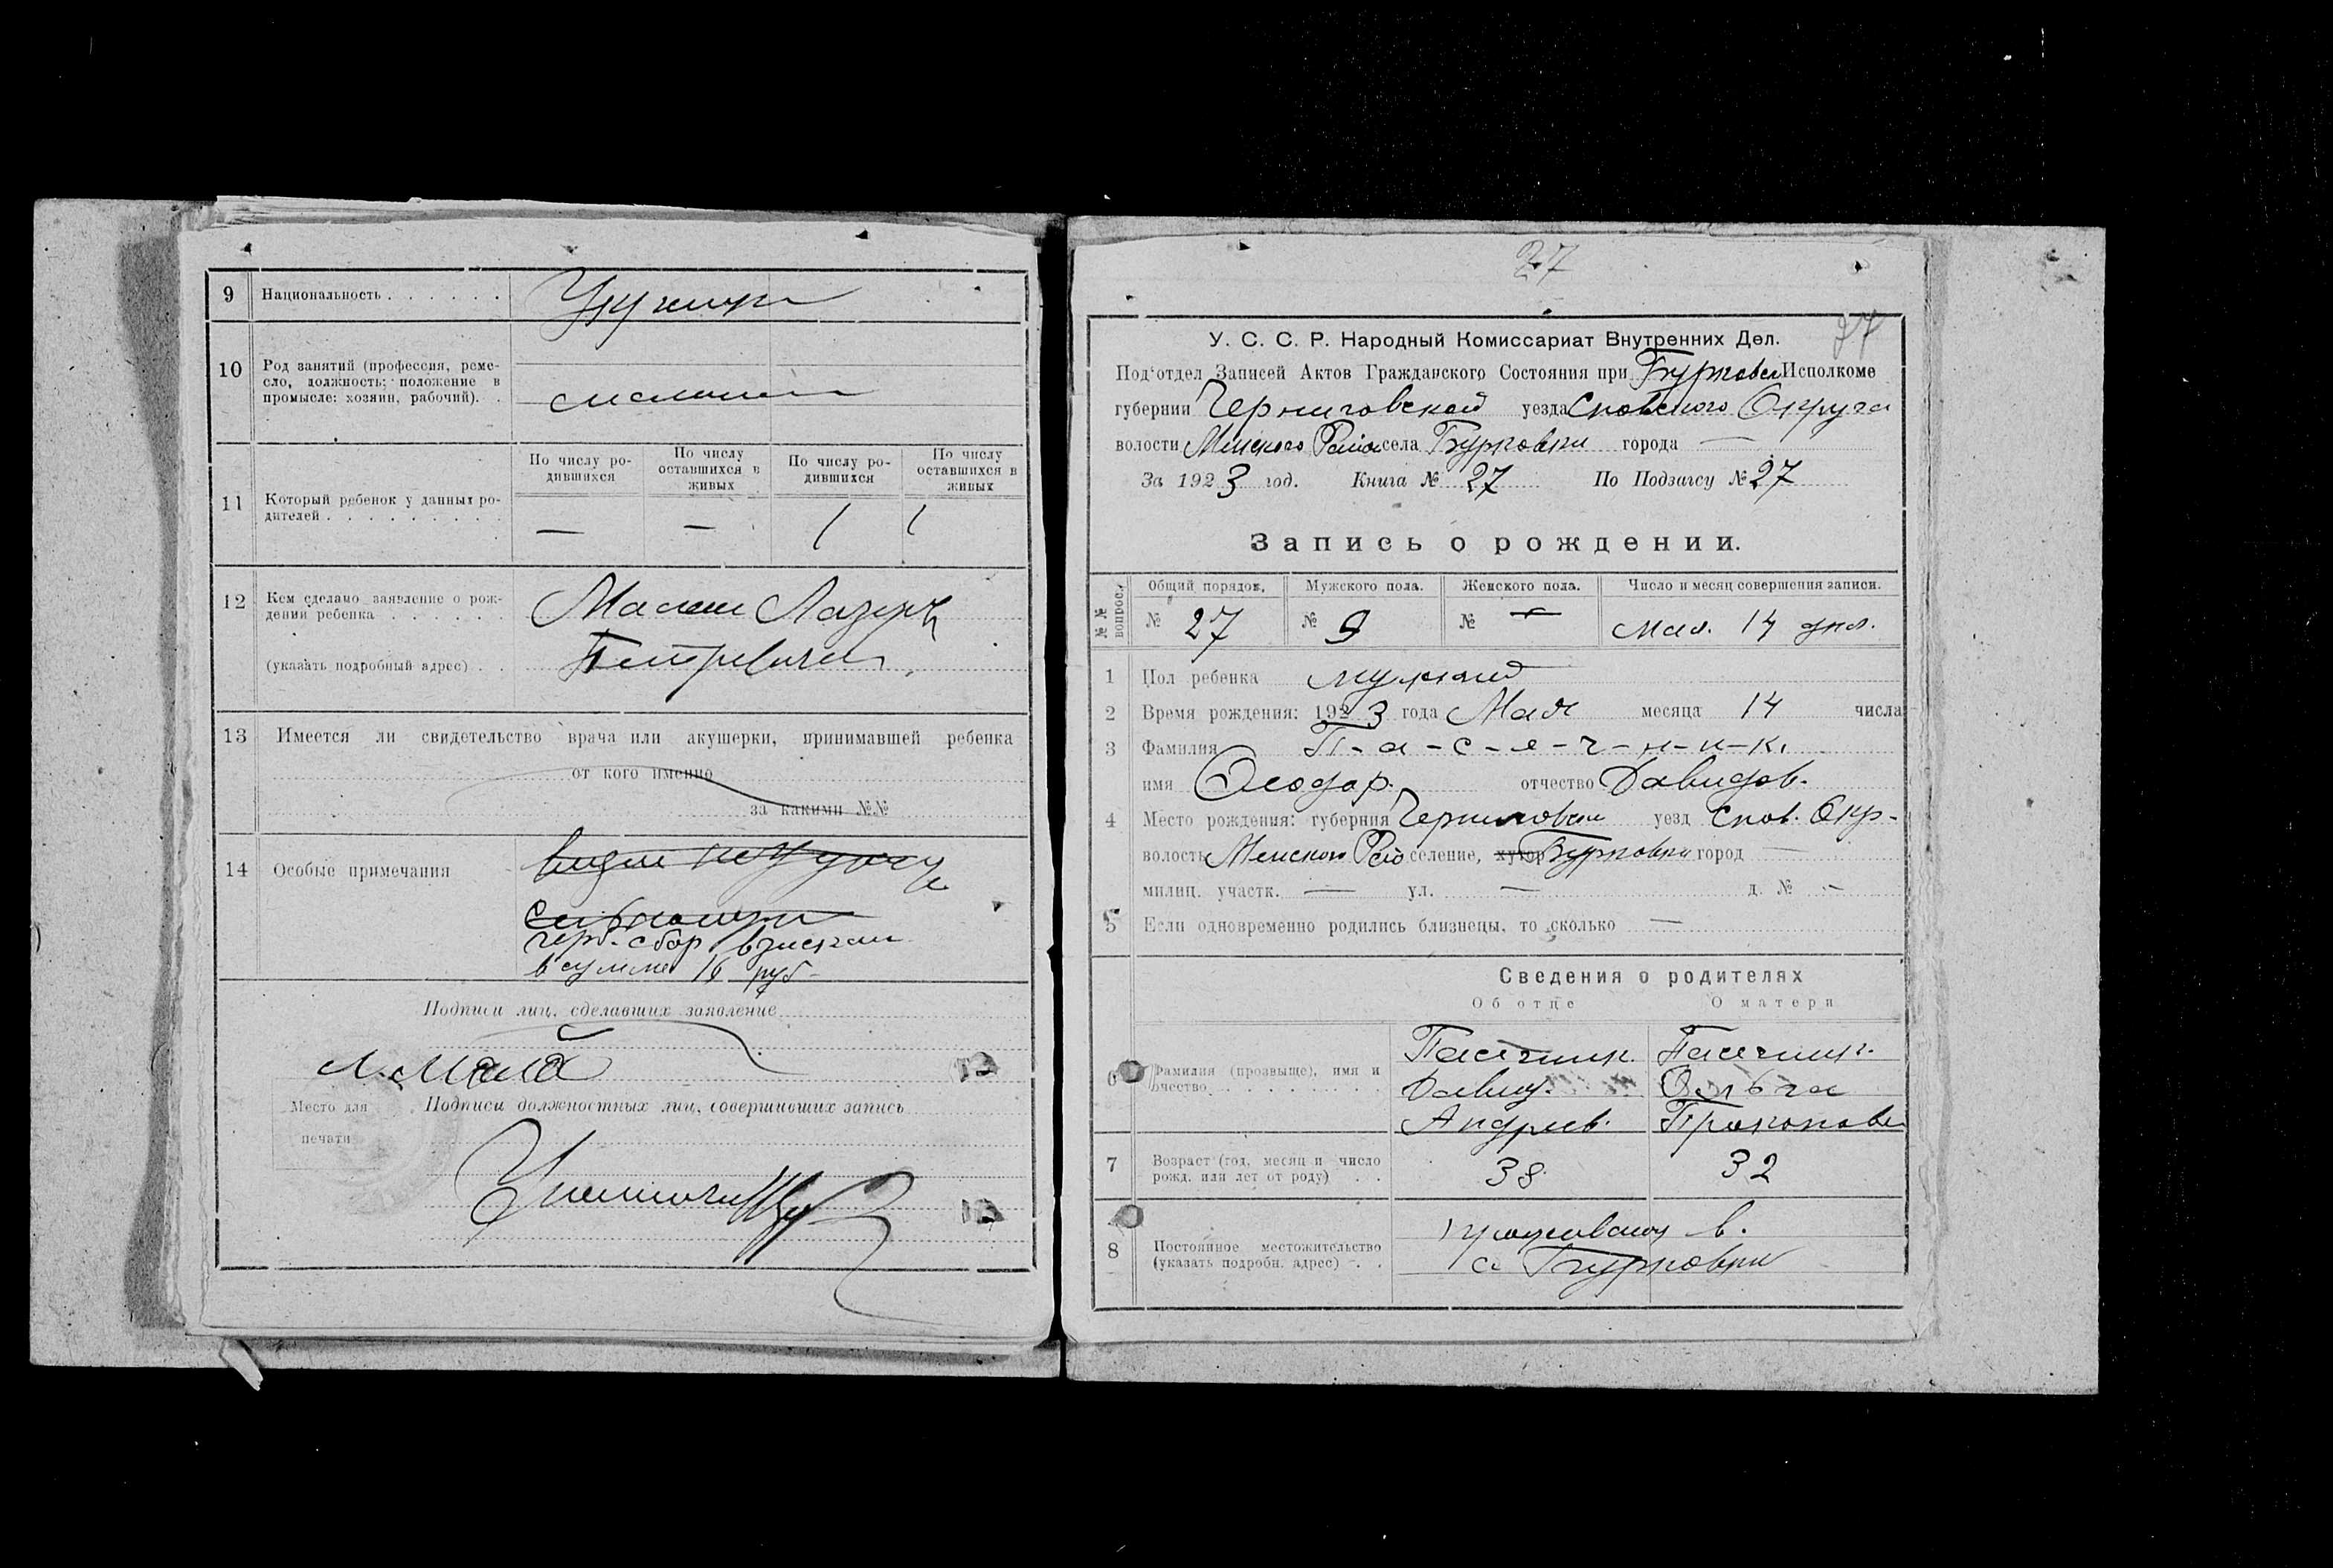 9 Национальность . . . . . .
10 Род занятий (профессия, реме-
сло, должность: положение в
промысле: хозяин, рабочий). .
По числу ро-
дившихся
По числу
оставшихся в
живых
По числу ро-
дившихся
По числу
оставшихся в
живых
11 Который ребенок у данных ро-
дителей . . . . . . . . .
— — 1 1
12 Кем сделано заявление о рож-
дении ребенка . . . . . .
(указать подробный адрес) . .
13 Имеется ли свидетельство врача или акушерки, принимавшей ребенка
от кого именно
за какими №№
14 Особые примечания
герб. сбор взискан
в сумме 16 руб
Подписи лиц, сделавших заявление
Место для
печати
Подписи должностных лиц, совершивших запись
27
27
У. С. С. Р. Народный Комиссариат Внутренних Дел.
Под'отдел Записей Актов Гражданского Состояния при Исполкоме
губернии Черниговской уезда Сновского Округа
волости Менского села Бурковки города —
За 1923 год. Книга № 27 По Подзагсу № 27
Запись о рождении.
№№ вопрос. Общий порядок. Мужского пола. Женского пола. Число и месяц совершения записи.
№ 27 № 9 № — мая. 14 дня.
1 Пол ребенка мужской
2 Время рождения: 1923 года Мая месяца 14 числа
3 Фамилия П-а-с-е-ч-н-и-к.
имя Феодор. отчество Давидов.
4 Место рождения: губерния Черниговской уезд Снов. Окр-
волость Менского Рай селение, хутор Бурковки город —
милиц. участк. — ул. — д. № —
5 Если одновременно родились близнецы, то сколько —
Сведения о родителях
Об отце О матери
6 Фамилия (прозвыще), имя и
очество . . . . . . . .
Пасечник. Пасечник.
Давид. Ольга
Андреев. Прокопов
7 Возраст (год, месяц и число
рожд. или лет от роду) . .
38 32
8 Постоянное местожительство
(указать подробн. адрес) . .
с Бурковки